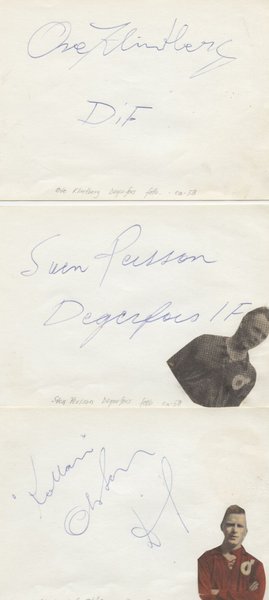 Ove Flindberg
DiF
Ove Flindberg Degerfors foto ca-58
Sven Persson
Degerfors IF
Sven Persson Degerfors foto ca-58
"Kollarn"
Olsson